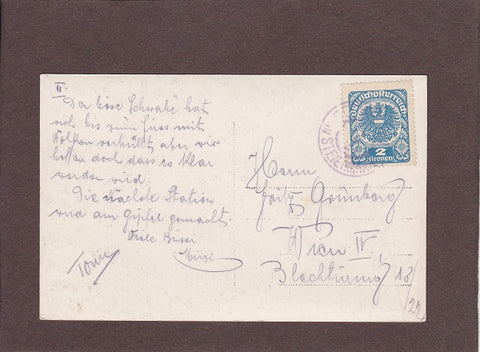 II
Der böse "Schwabe" hat
sich bis zum fuss mit
Wolken verhüllt, aber wir
hoffen doch dass es klar
werden wird.
Die nächste Station
wird am Gipfel gemacht.
Viele Bussi
Mizzi
Deutschösterreich
2
Kronen
Herrn
Fritz Grünberg
Wien IV,
18/
21